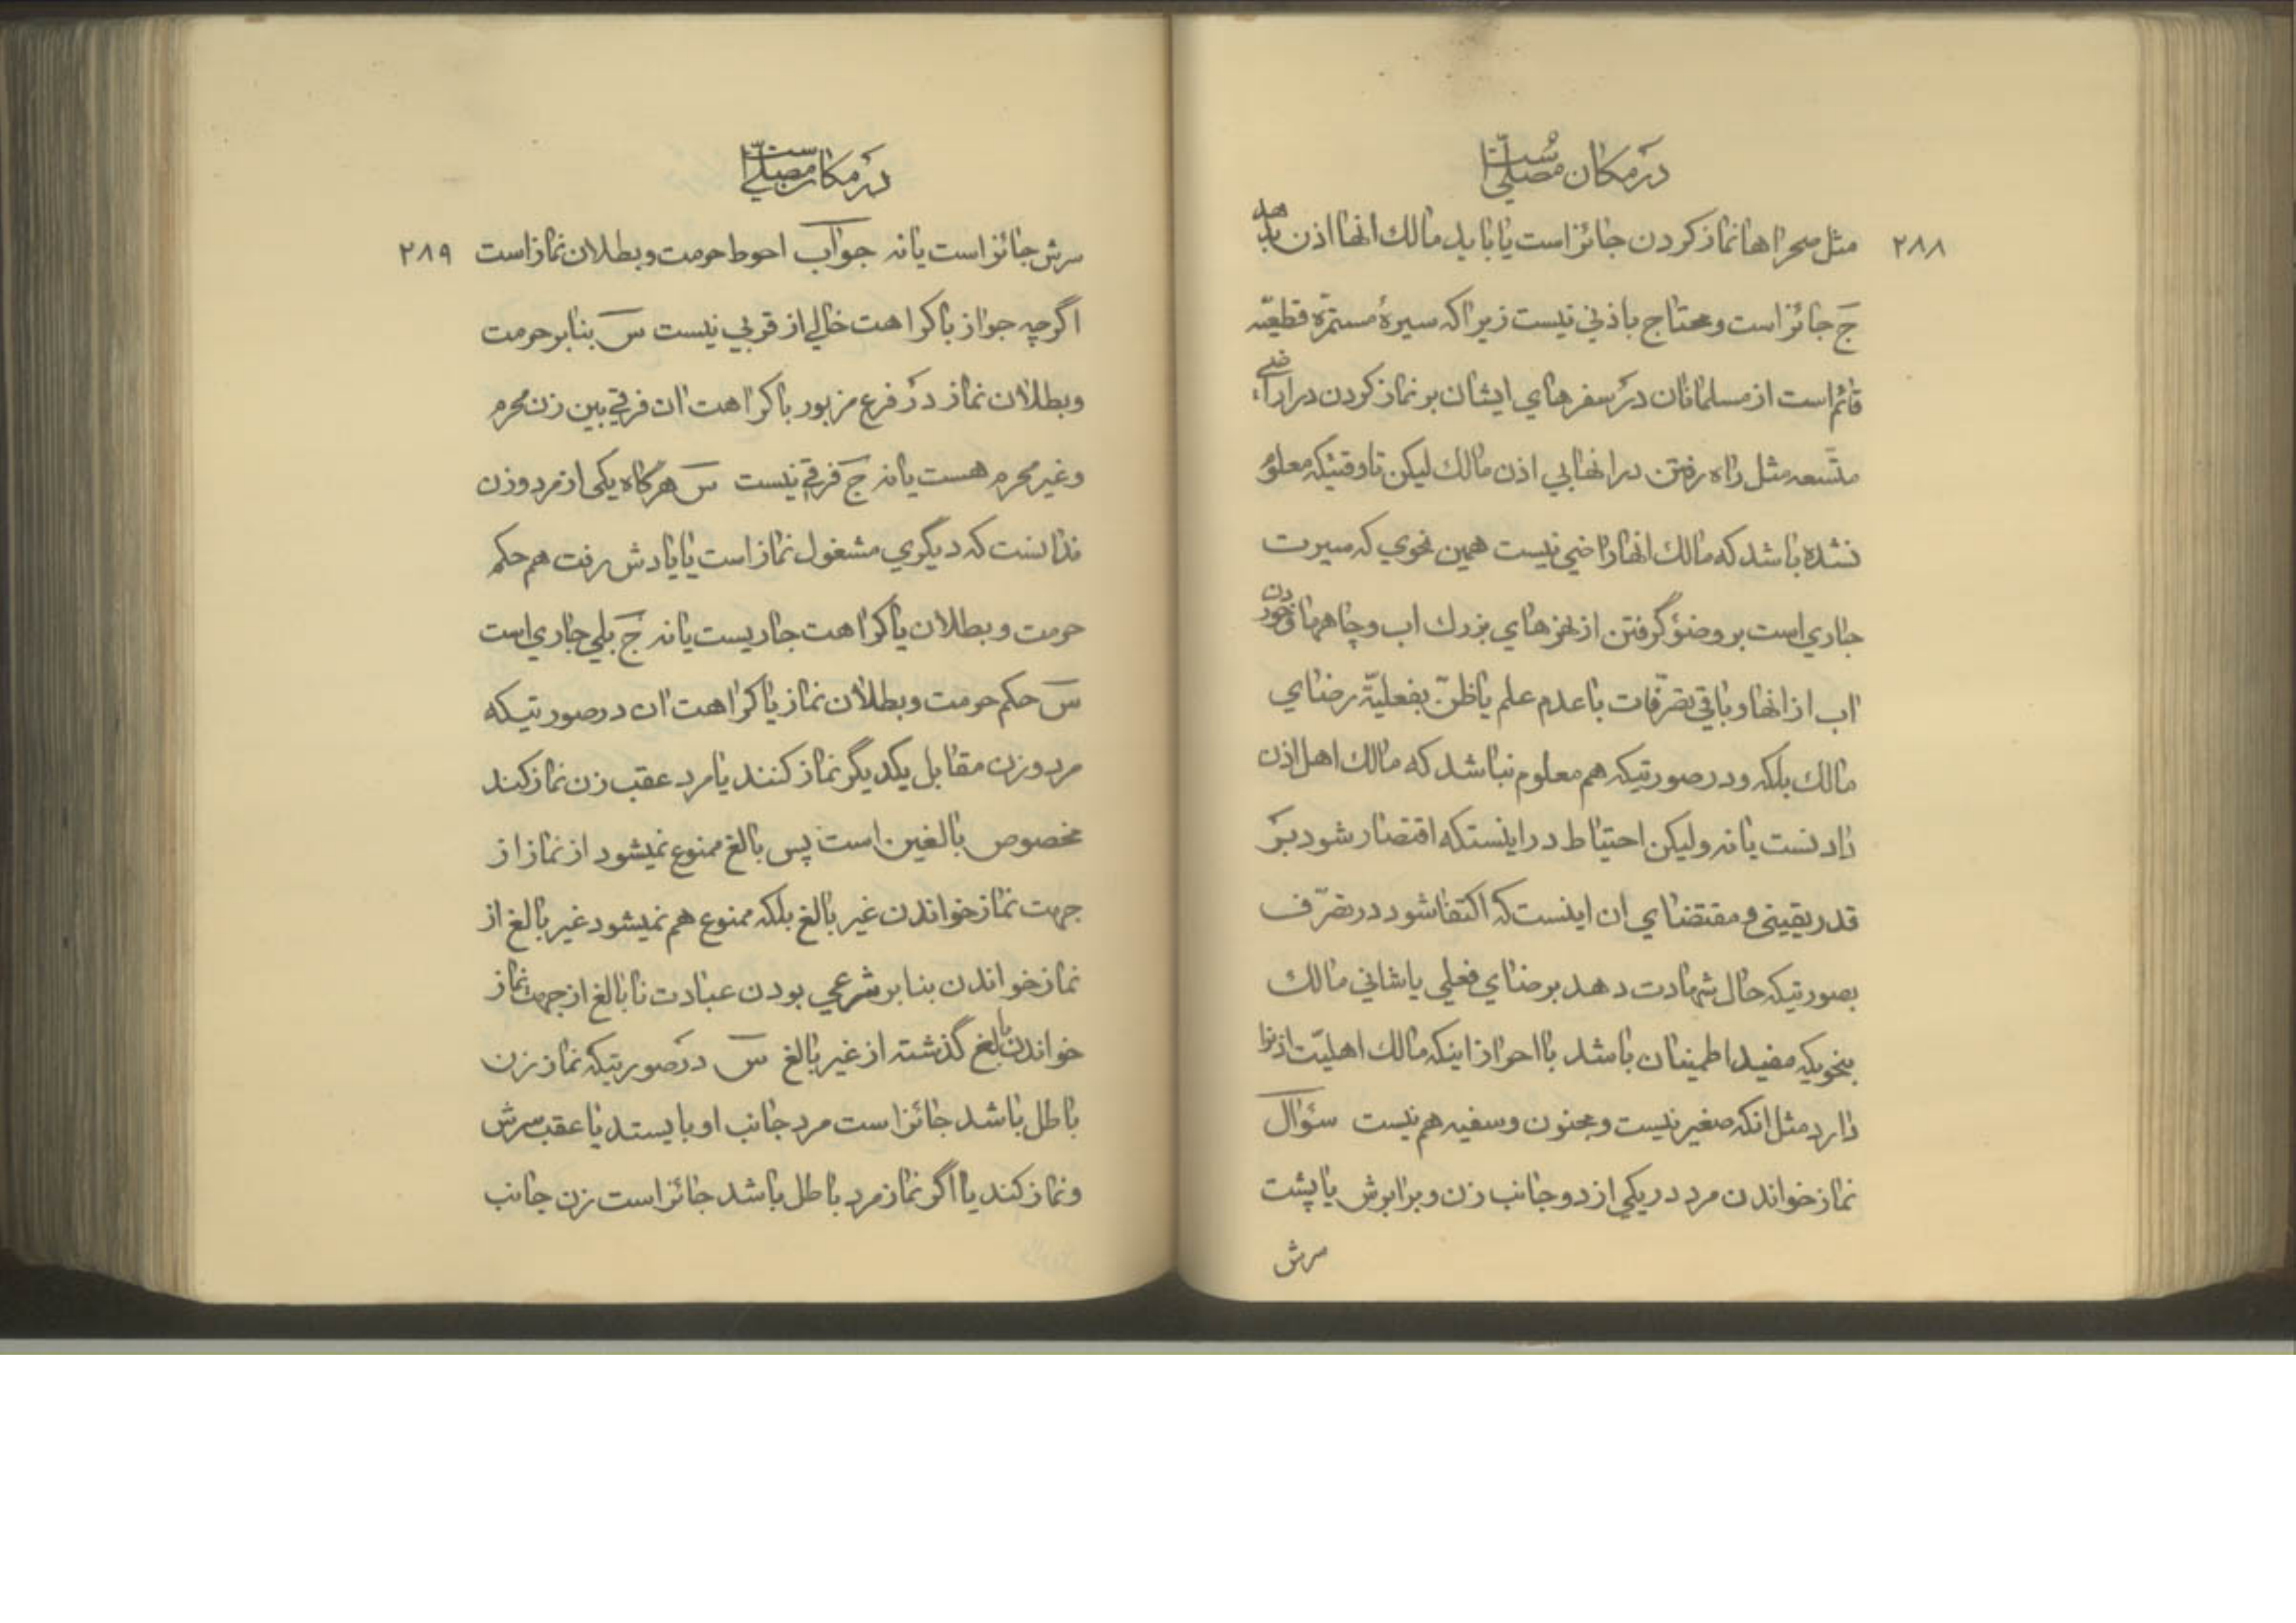 در مکان مصلّی است
۲۸۸
مثل صحراها نماز کردن جائز است یا باید مالك انها اذن بدهد
ج جائز است و محتاج باذنی نیست زیرا که سیرهٔ مستمرّه قطعیّه
قائم است از مسلمانان در سفرهای ایشان بر نماز کردن در اراضی
متّسعه مثل راه رفتن در انها بی اذن مالك لیکن تا وقتیکه معلوم
نشده باشد که مالك انها راضی نیست همین نحوی که سیرت
جاری است بر وضؤ گرفتن از نهرهای بزرك اب و چاهها و خوردن
اب از انها و باقی تصرّفات با عدم علم یا ظنّ بفعلیّة رضای
مالك بلکه و در صورتیکه هم معلوم نباشد که مالك اهل اذن
دادنست یا نه ولیکن احتیاط در اینستکه اقتصار شود بر
قدر یقینی و مقتضای ان اینست که اکتفا شود در تصرّف
بصورتیکه حال شهادت دهد بر رضای فعلی یا شانی مالك
بنحویکه مفید اطمینان باشد با احراز اینکه مالك اهلیّت اذنرا
دارد مثل انکه صغیر نیست و مجنون و سفیه هم نیست سؤال
نماز خواندن مرد در یکی از دو جانب زن و برابرش یا پشت
سرش
در مکان مصلّی است
۲۸۹
سرش جائز است یا نه جواب احوط حرمت و بطلان نماز است
اگرچه جواز با کراهت خالی از قربی نیست س بنابر حرمت
و بطلان نماز در فرع مزبور یا کراهت ان فرقی بین زن محرم
و غیر محرم هست یا نه ج فرقی نیست س هرگاه یکی از مرد و زن
ندانست که دیگری مشغول نماز است یا یادش رفت هم حکم
حرمت و بطلان یا کراهت جاریست یا نه ج بلی جاری است
س حکم حرمت و بطلان نماز یا کراهت ان در صورتیکه
مرد و زن مقابل یکدیگر نماز کنند یا مرد عقب زن نماز کند
مخصوص بالغین است پس بالغ ممنوع نمیشود از نماز از
جهت نماز خواندن غیر بالغ بلکه ممنوع هم نمیشود غیر بالغ از
نماز خواندن بنابر شرعی بودن عبادت نابالغ از جهت نماز
خواندن بالغ گذشته از غیر بالغ س در صورتیکه نماز زن
باطل باشد جائز است مرد جانب او بایستد یا عقب سرش
و نماز کند یا اگر نماز مرد باطل باشد جائز است زن جانب